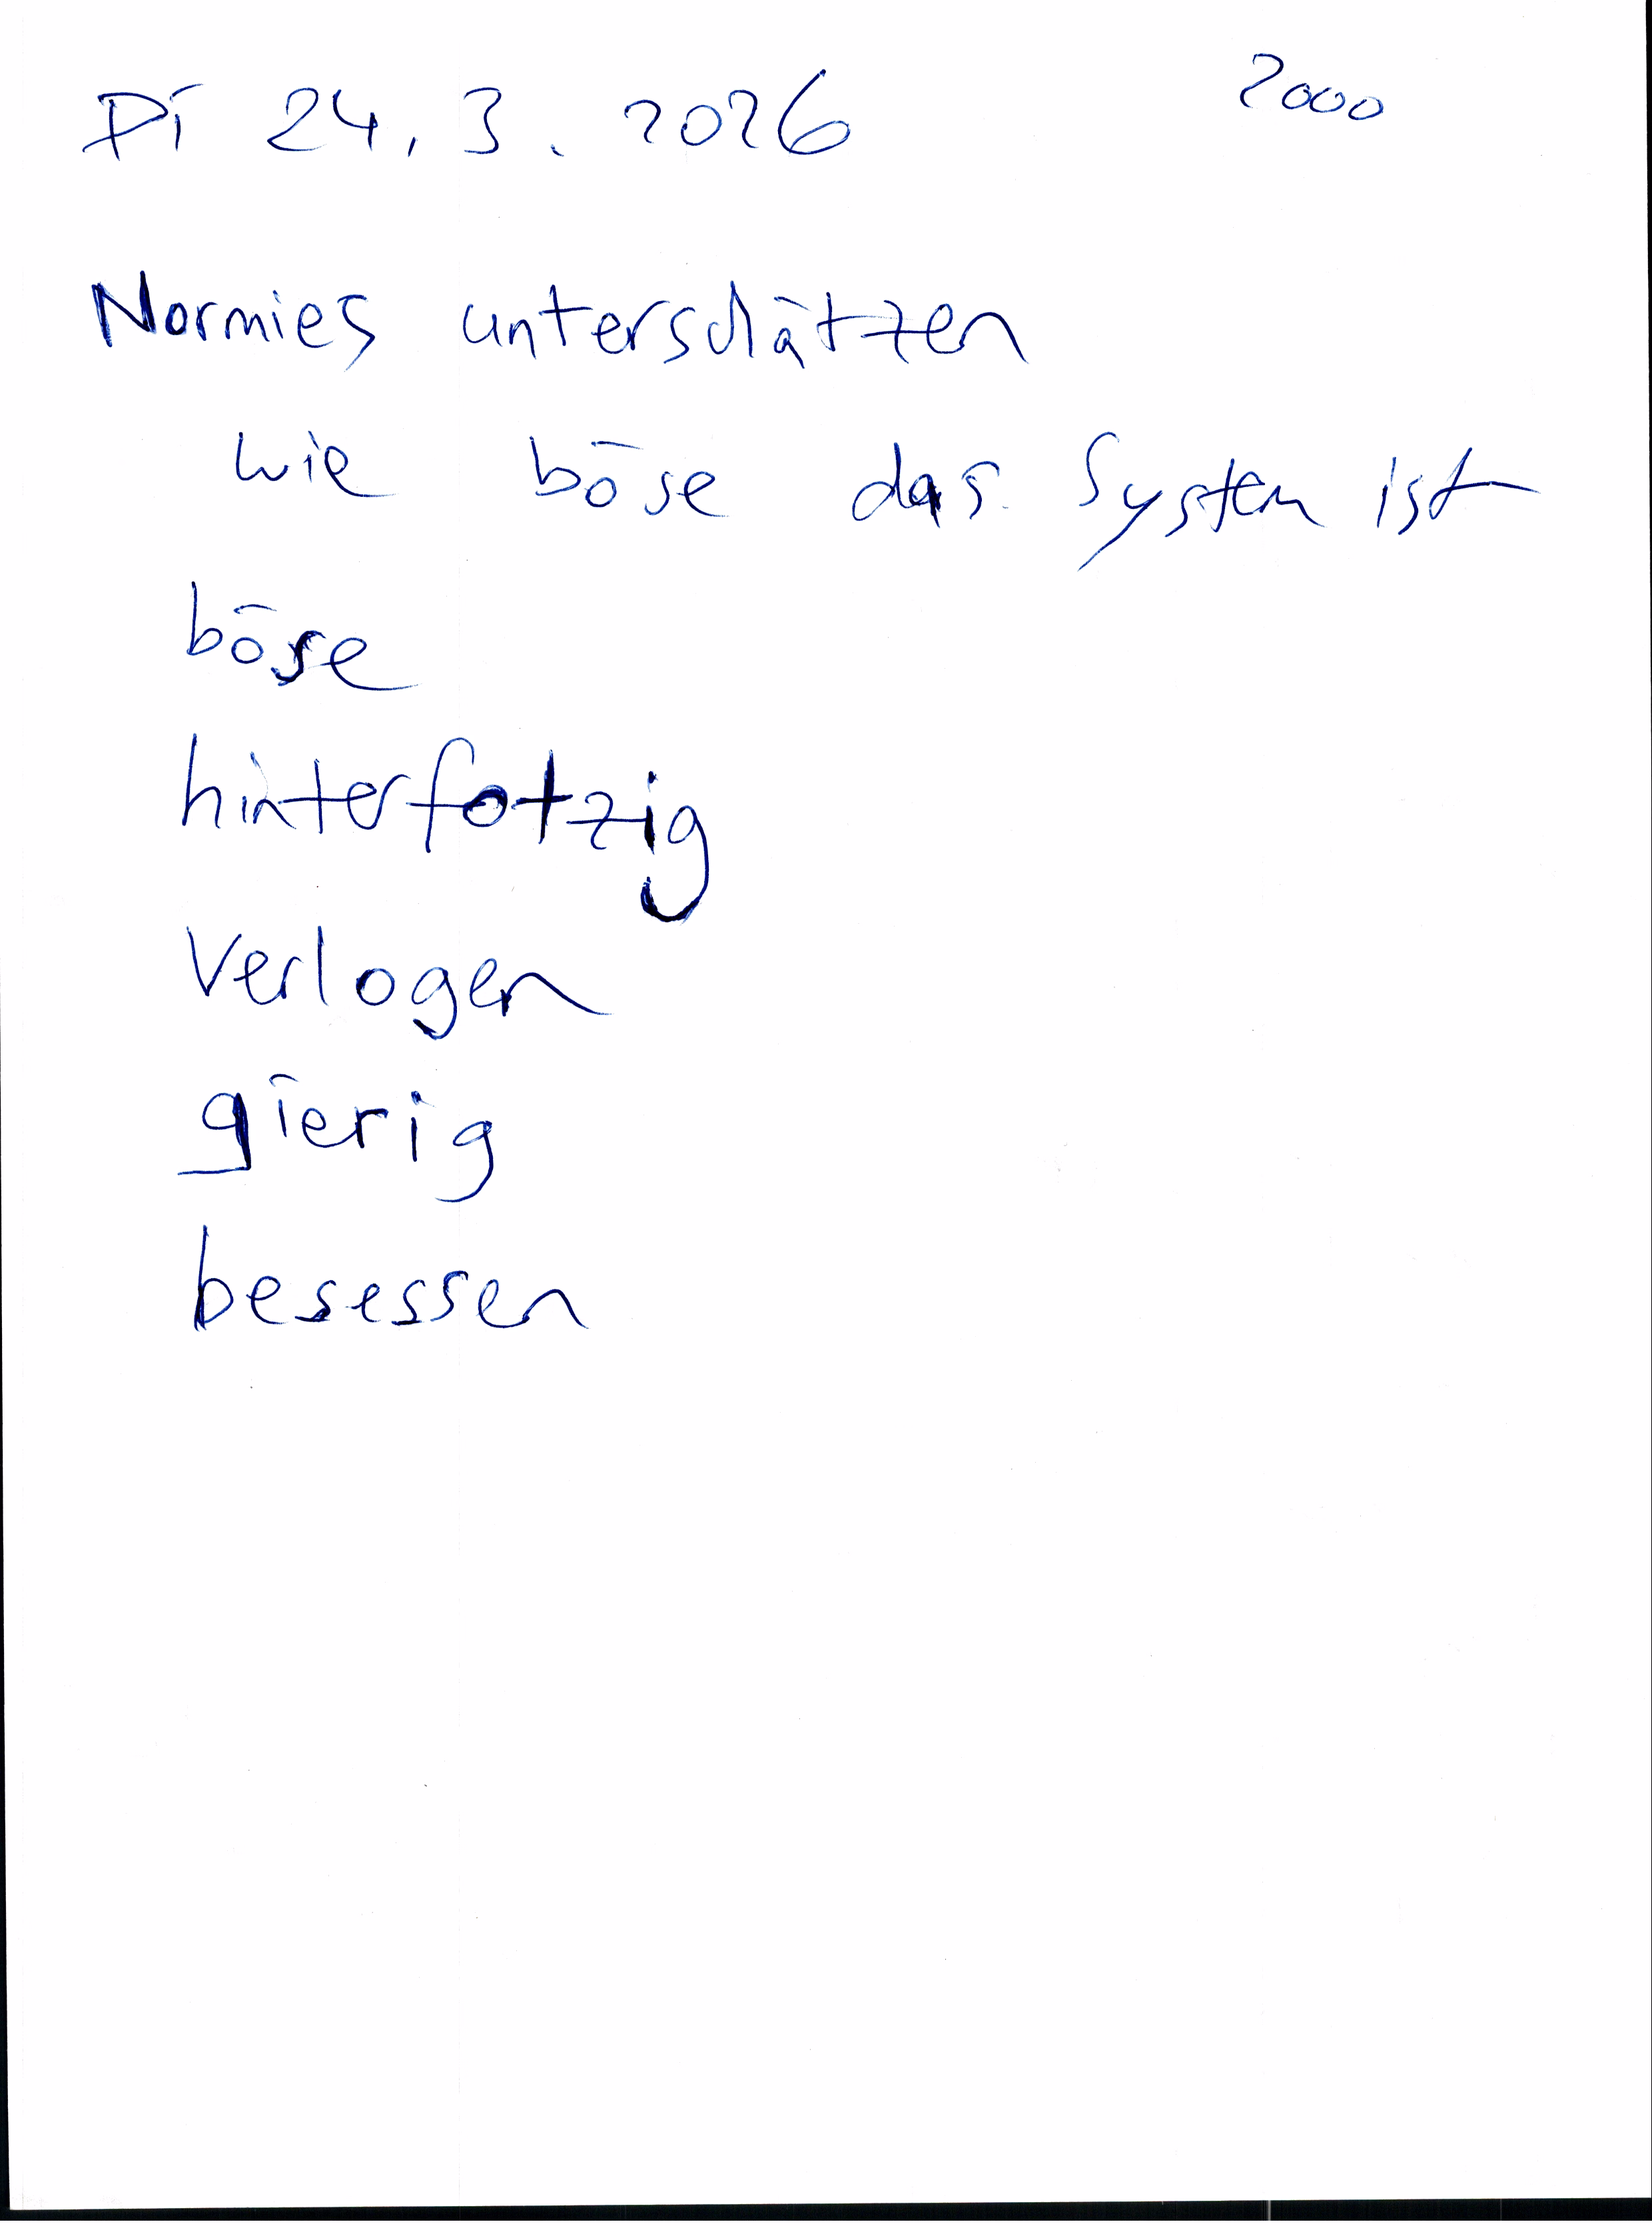 Di 24.3.2026 2000
Normies unterschätzen
wie böse das System ist
böse
hinterfotzig
verlogen
gierig
besessen